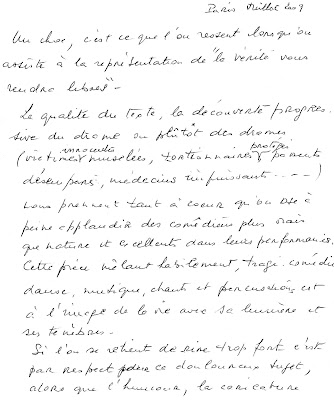 Paris Juillet 2009
Un choc, c'est ce que l'on ressent lorsqu'on
assiste à la représentation de "la vérité vous
rendra libres" -
La qualité du texte, la découverte progres-
sive du drame ou plûtôt des drames
innocentes protégés
(victimes muselées, tortionnaires, parents
désemparés, médecins impuissants ----)
vous prennent tant à coeur qu'on ose à
peine applaudir des comédiens plus vrais
que nature et excellents dans leurs performances.
Cette pièce mêlant habilement, tragi-comédie
danse, musique, chants et percussions, est
à l'image de la vie avec sa lumière et
ses ténèbres -
Si l'on se retient de rire trop fort c'est
par respect pour ce douloureux sujet,
alors que l'humour, la caricature